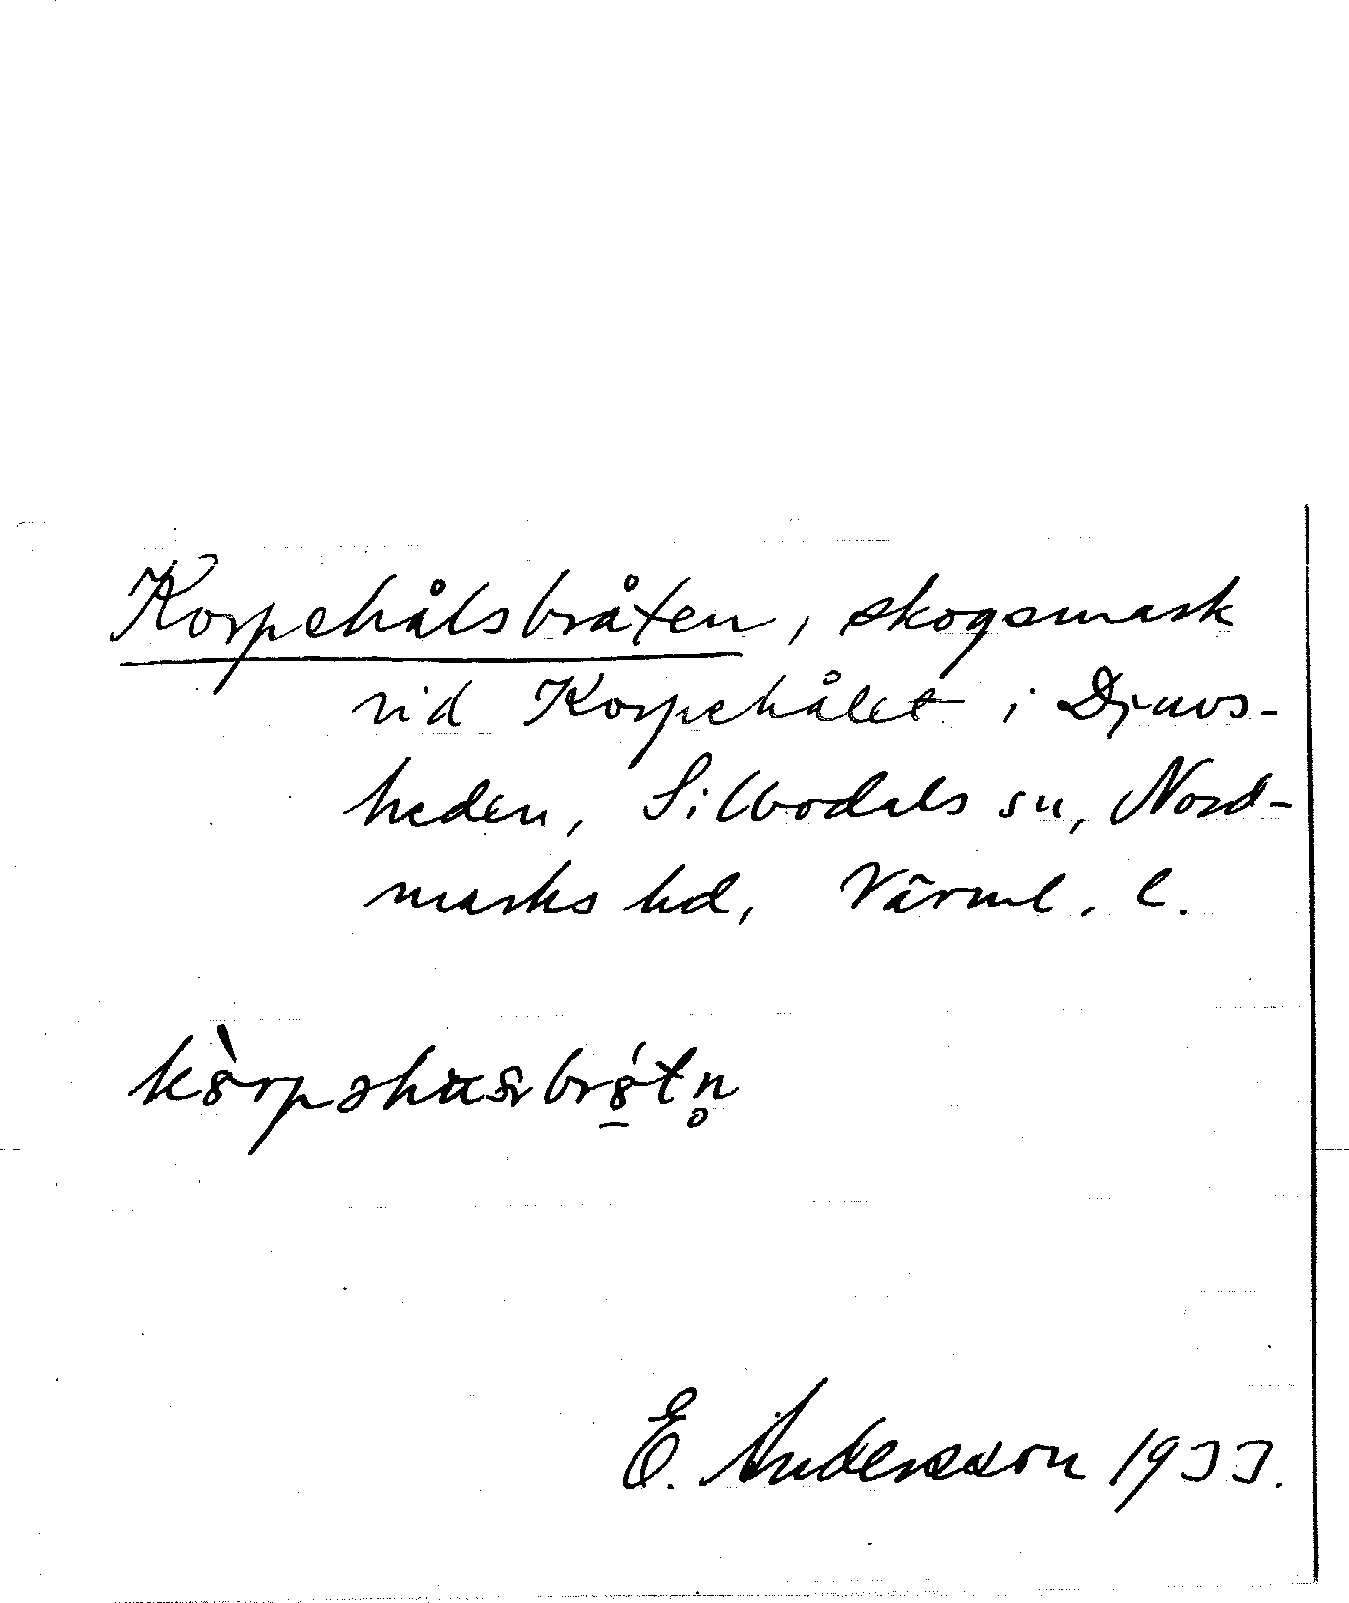 Korpehålsbråten, skogsmark
vid Korpehålet i Djuvs-
heden, Silbodals sn, Nord-
marks hd, Värml. l.
E. Andersson 1933.